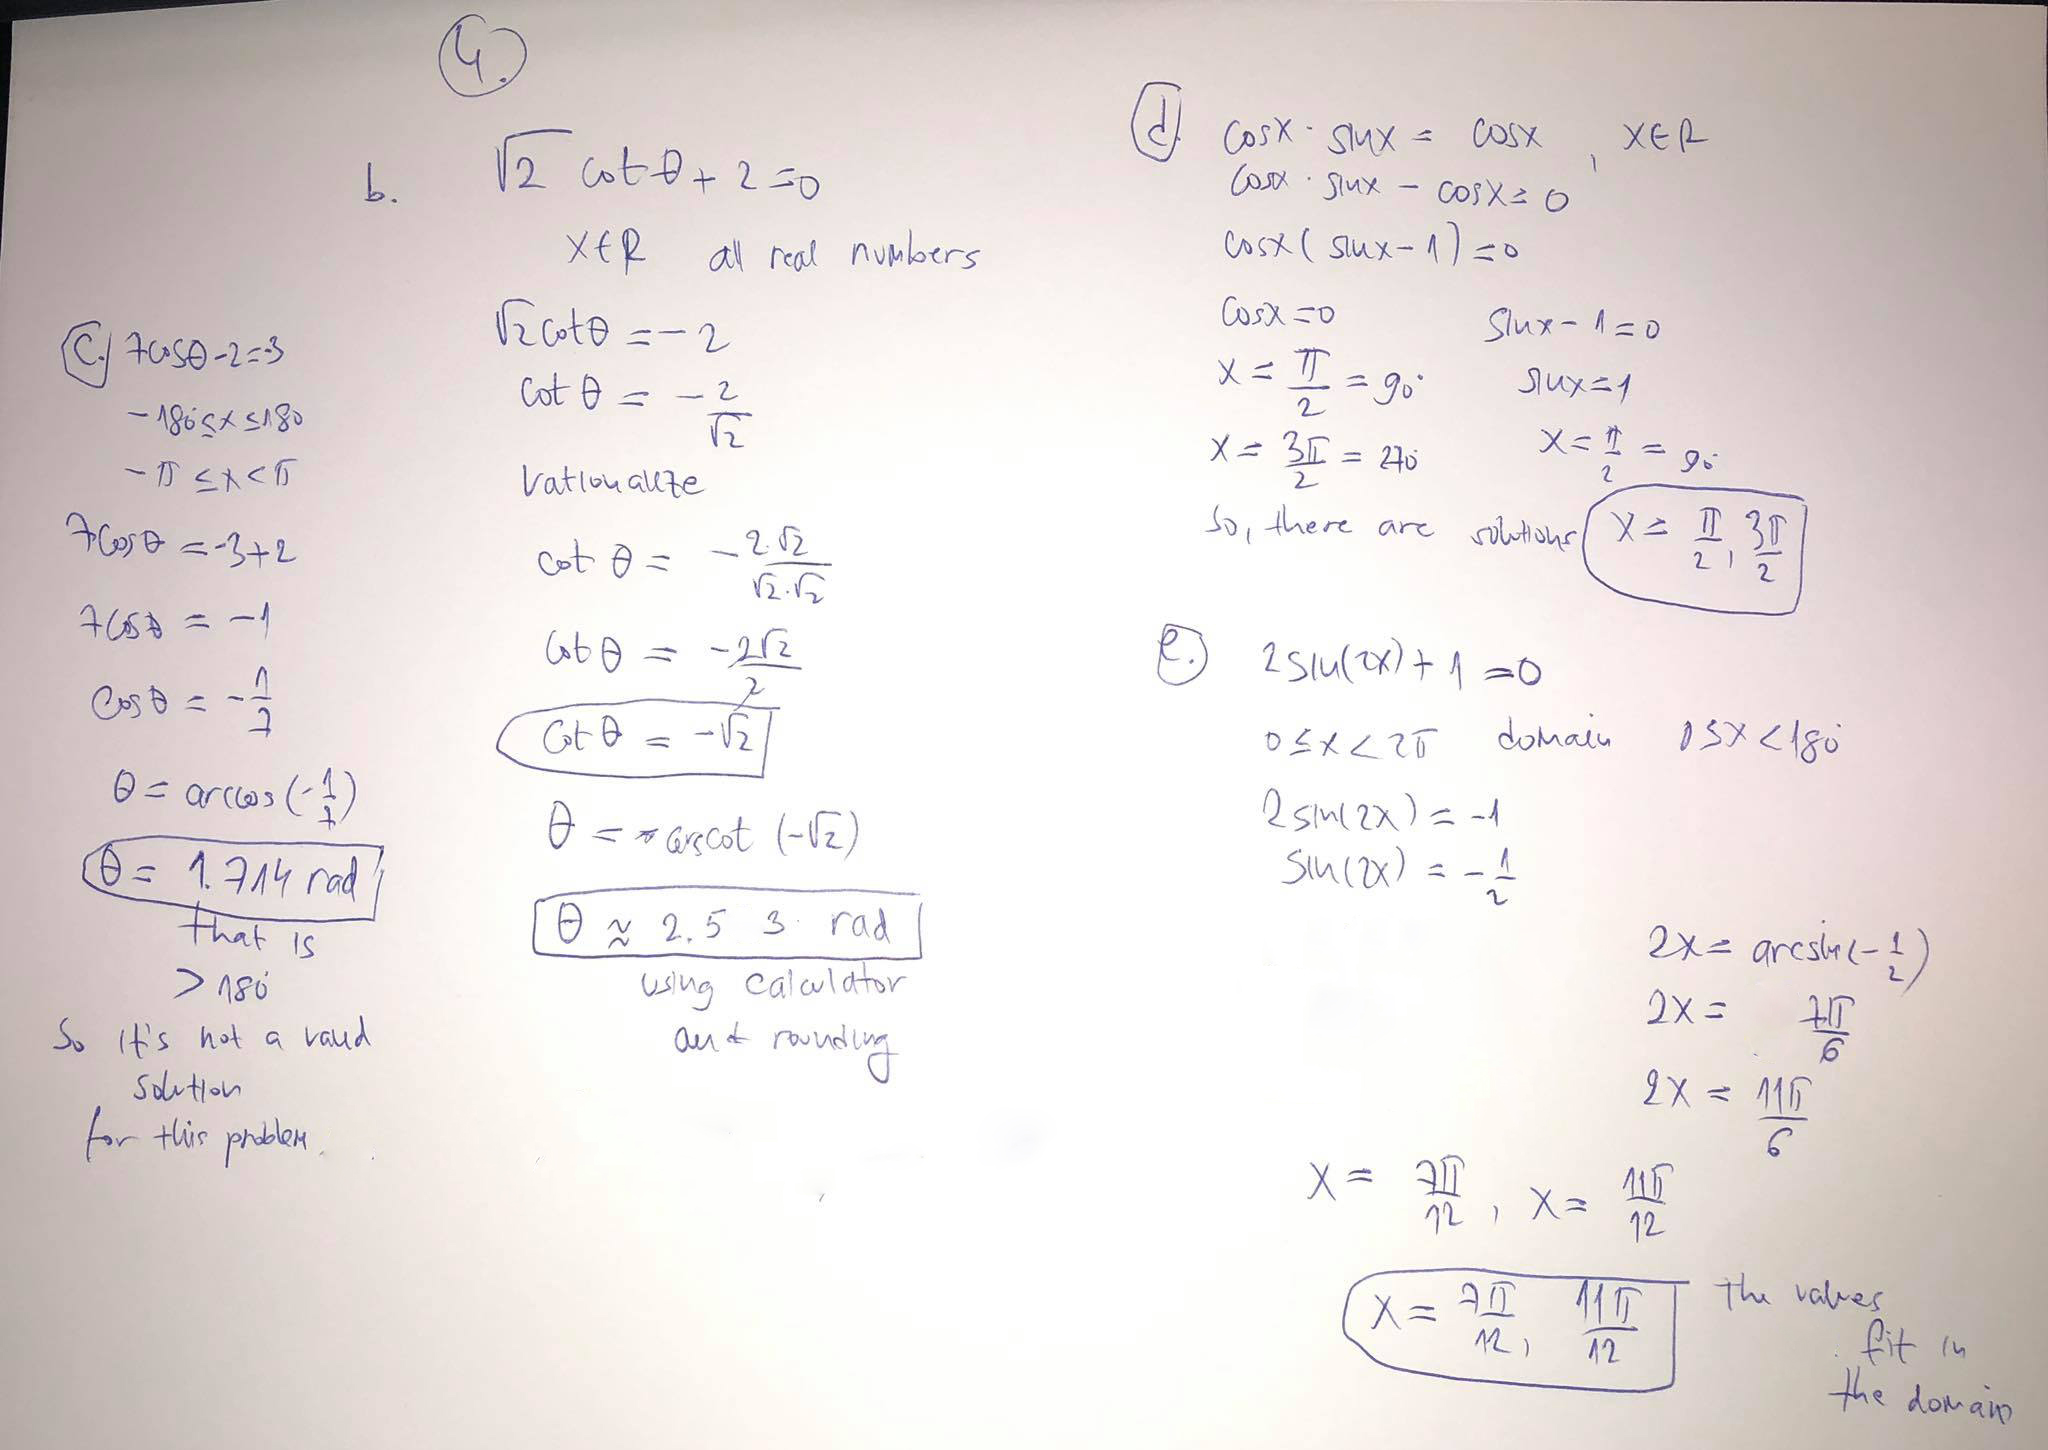 4.
b. √2 cot θ + 2 = 0
x∈R all real numbers
√2 cot θ = -2
cot θ = - 2/√2
rationalize
cot θ = - 2·√2/√2·√2
cot θ = -2√2/2
cot θ = -√2
θ = arccot (-√2)
θ ≈ 2.53 rad
using calculator
and rounding
c. 7cosθ - 2 = -3
-180° ≤ x ≤ 180
-π ≤ x < π
7cosθ = -3+2
7cosθ = -1
cosθ = -1/7
θ = arccos(-1/7)
θ = 1.714 rad
that is
> 180°
So it's not a valid
solution
for this problem.
d. cosx · sinx = cosx , x∈R
cosx · sinx - cosx = 0
cosx ( sinx - 1) = 0
cosx = 0
x = π/2 = 90°
x = 3π/2 = 270°
sinx - 1 = 0
sinx = 1
x = π/2 = 90°
So, there are solutions x = π/2, 3π/2
e. 2sin(2x) + 1 = 0
0 ≤ x < 2π domain 0 ≤ x < 180°
2sin(2x) = -1
sin(2x) = -1/2
2x = arcsin(-1/2)
2x = 7π/6
2x = 11π/6
x = 7π/12, x = 11π/12
x = 7π/12, 11π/12
The values
fit in
the domain